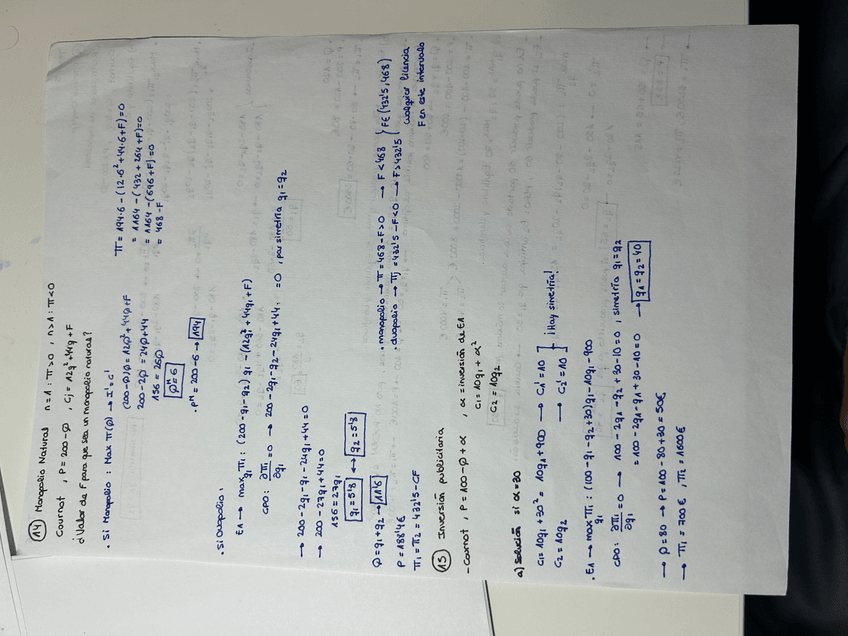 14 Monopolio Natural n=1 : π>0 , n>1 : π<0
Cournot , P=200-Q , Cj = 12q²+44q+F
¿Valor de F para que sea un monopolio natural?
· Si Monopolio : Max π(Q) → I'=C'
(200-Q)Q = 12Q²+44Q+F
200-2Q = 24Q+44
156 = 26Q
Q^M=6
· P^M = 200-6 → 194
π = 194·6 - (12·6²+44·6+F)=0
= 1164 - (432+264+F)=0
= 1164 - (696+F)=0
= 468-F
· Si Duopolio :
E1 → max π1 : (200-q1-q2) q1 - (12q1²+44q1+F)
q1
CPO: ∂π1/∂q1 = 0 → 200-2q1-q2-24q1+44, = 0 , por simetría q1=q2
→ 200-2q1-q1-24q1+44=0
→ 200-27q1+44=0
156=27q1
q1=5'8 ↔ q2=5'8
Q=q1+q2 → 11'6
P=188'4€
π1=π2=432'5-CF
· monopolio → π=468-F>0 → F<468
· duopolio → πj=432'5-F<0 → F>432'5
F∈(432'5,468)
Cualquier licencia
F en este intervalo
15 Inversión publicitaria
- Cournot , P=100-Q+α , α=inversión de E1
C1=10q1+α²
C2=10q2
a) Solución si α=30
C1=10q1+30²=10q1+900 → C1'=10
C2=10q2 → C2'=10
¡Hay simetría!
· E1 → max π1 : (100-q1-q2+30)q1-10q1-900
q1
CPO: ∂π1/∂q1 = 0 → 100-2q1-q2+30-10=0 , simetría q1=q2
= 100-2q1-q1+30-10=0 → q1=q2=40
→ Q=80 → P=100-80+30=50€
→ π1=700€ , π2=1600€